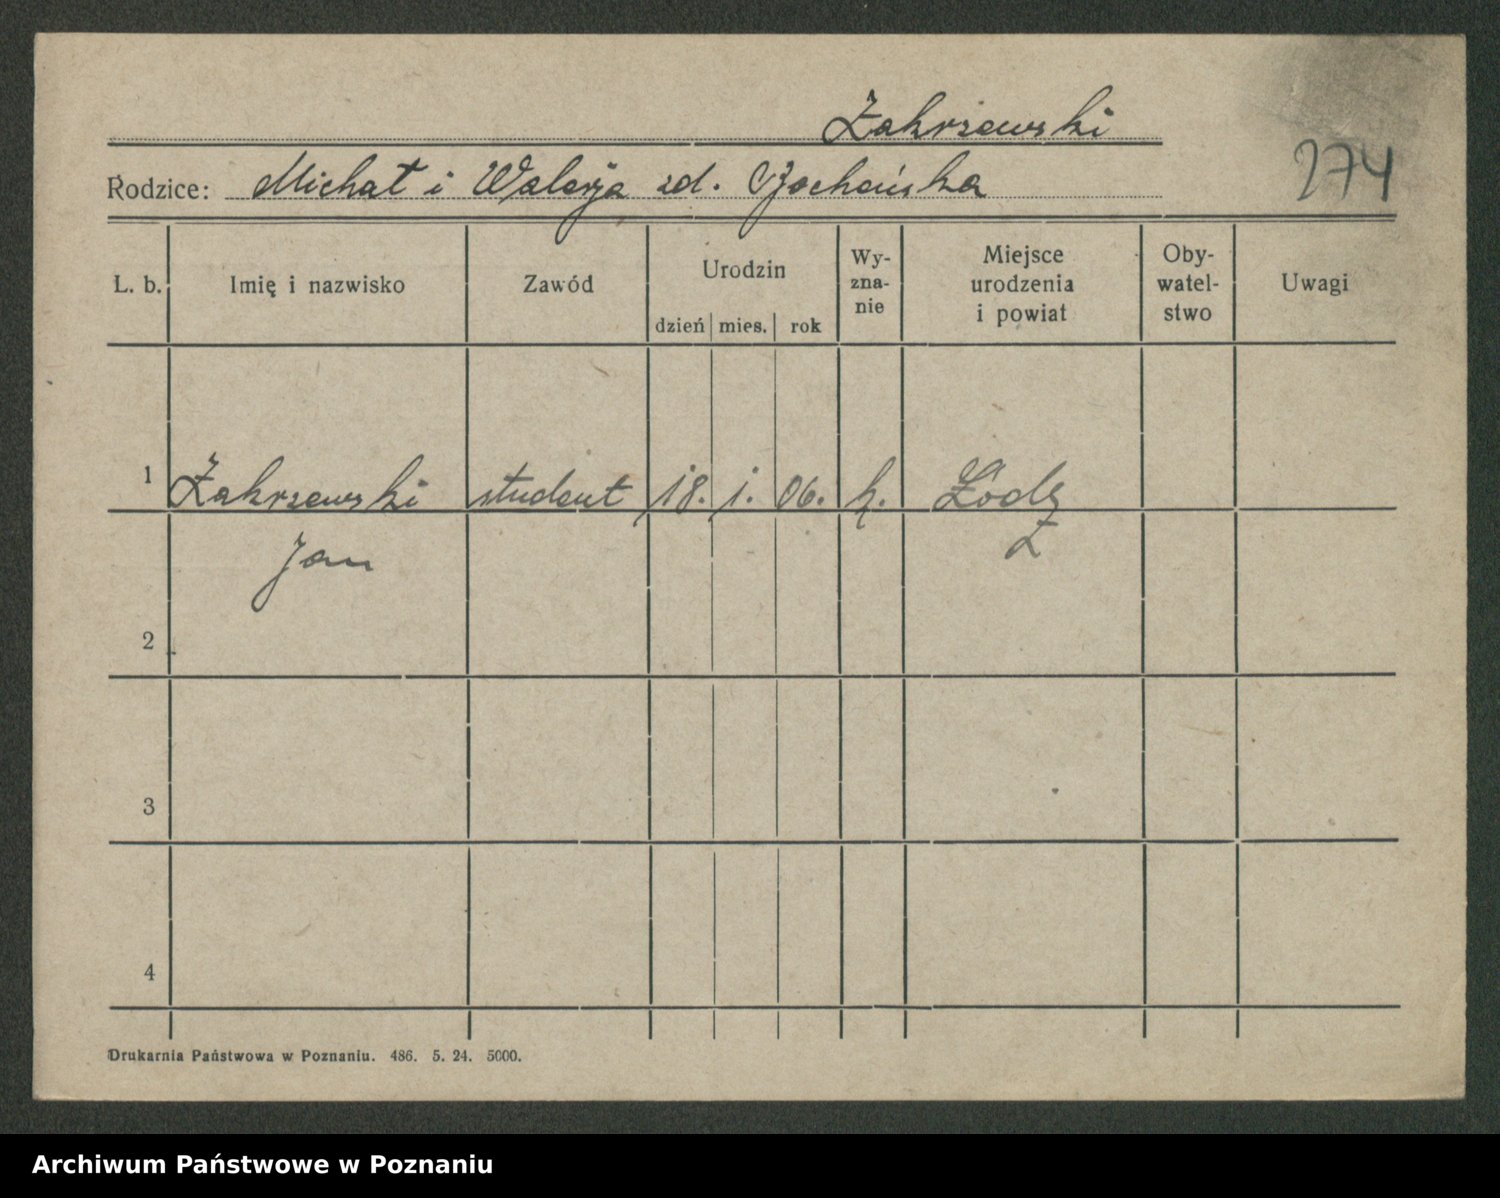 Zakrzewski
274
Rodzice: Michał i Walerja zd.
L. b. Imię i nazwisko Zawód Urodzin dzień mies. rok Wy-zna-nie Miejsce urodzenia i powiat Oby-watel-stwo Uwagi
1 Zakrzewski student 18. 1. 06. k. Łódź
Jan Ł
2
3
4
Drukarnia Państwowa w Poznaniu. 486. 5. 24. 5000.
Archiwum Państwowe w Poznaniu